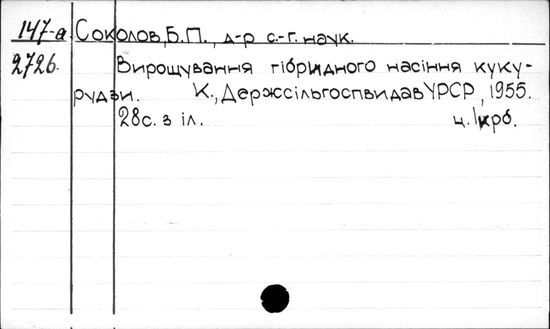 147-а Соколов, Б.П., д-р с.-г. наук.
2726. Вирощування гібридного насіння куку-
рудзи. К., Держсільгоспвидав УРСР, 1955.
28с. з іл. ц. 1 крб.